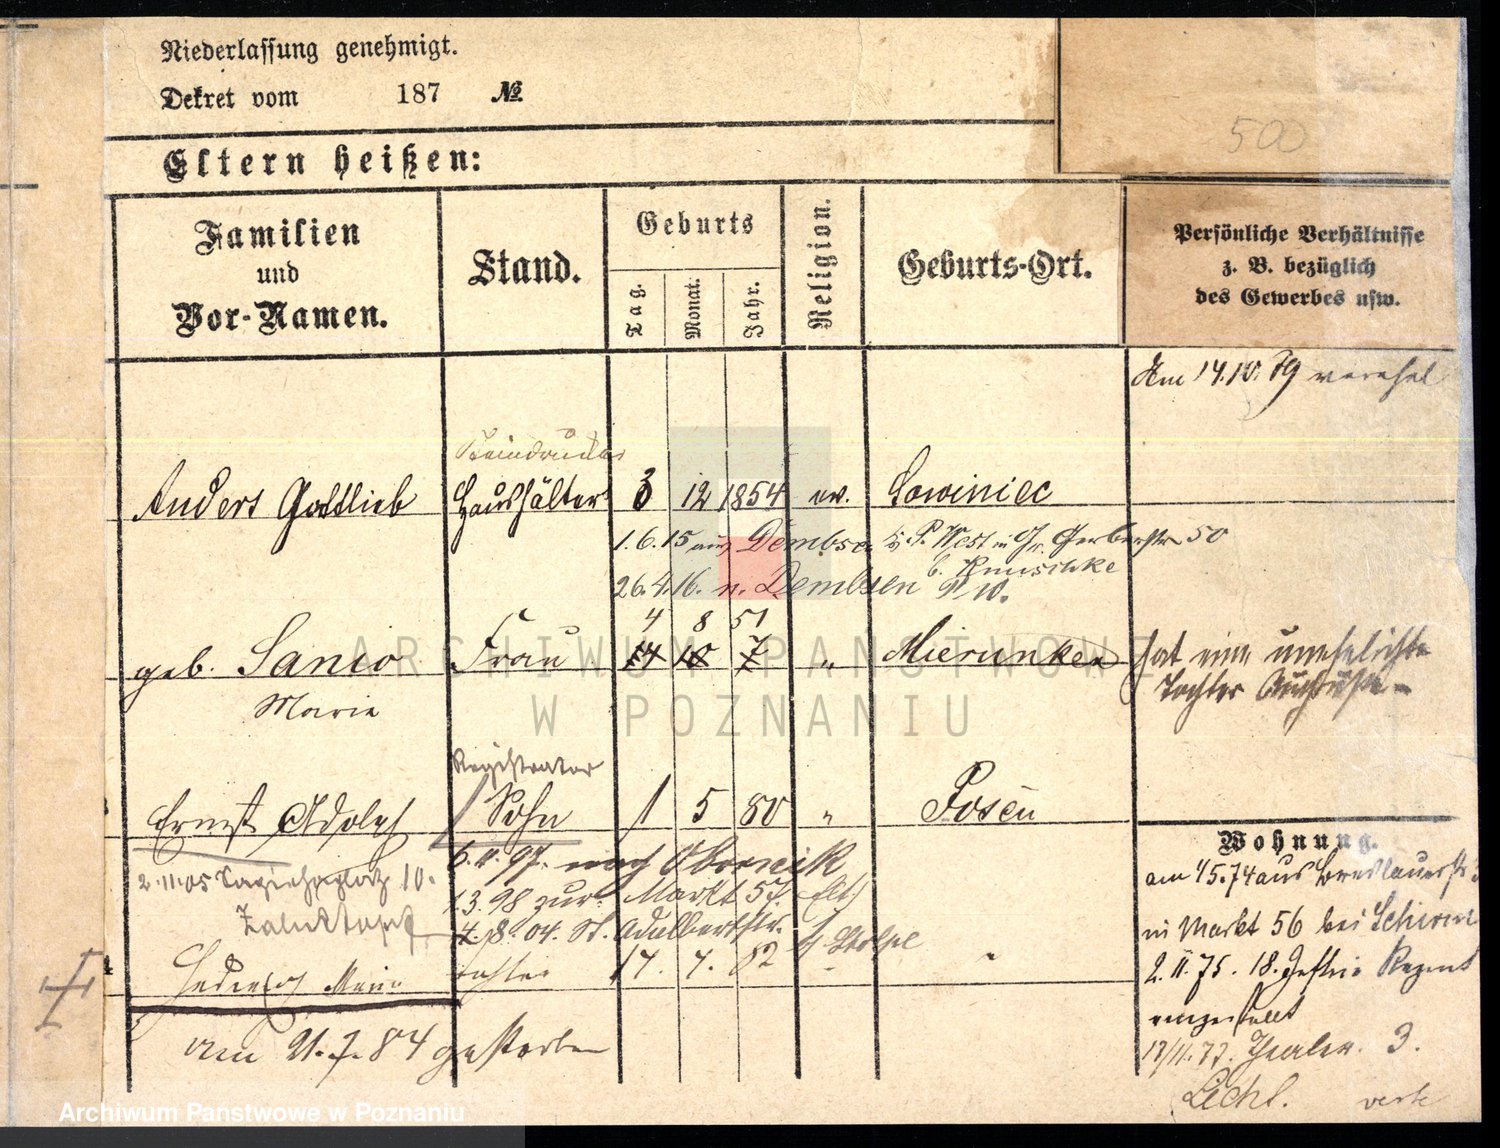 Niederlassung genehmigt.
Dekret vom 187 №
500
Eltern heißen:
Familien und Vor-Namen.
Stand.
Geburts
Tag.
Monat.
Jahr.
Religion.
Geburts-Ort.
Persönliche Verhältnisse
z. B. bezüglich
des Gewerbes usw.
Am 14.10.79 verehel
Anders Gottlieb Haushälter 3 12 1854 ev. Lowiniec
1.6.15 aus Dembsen P. West Gr. Gerberstr 50
26.4.16. n. Dembsen
4 8 51
geb. Sanio Frau 14 10 7 " Mierunken
Marie
hat eine unehelichte
Tochter Auguste
Registrator
Ernst Adolph Sohn 1 5 80 " Posen
6.11.97. nach Obornik
2.11.05 10.
1.3.98 zur Markt 57.
4.8.04. St. Adalbertstr.
Hedwig Marie Tochter 17. 7. 82 "
am 21.7.84 gestorben
Wohnung.
am 15.74 aus Breslauerstr
in Markt 56 bei Schirm
2.11.75. 18. Regmt
eingestellt
17/11.77. 3.
Archiwum Państwowe w Poznaniu
ARCHIWUM PAŃSTWOWE
W POZNANIU